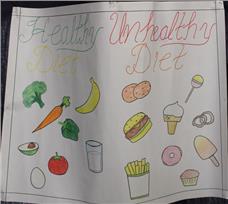 Healthy
Diet
Unhealthy
Diet